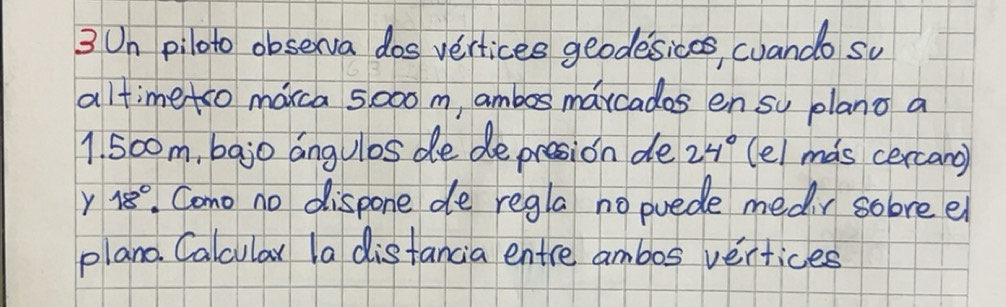 3 Un piloto observa dos vértices geodésicos, cuando su
altimetro márca 5.000 m, ambos márcados en su plano a
1.500 m, bajo ángulos de de presión de 24° (el más cercano)
y 18°. Como no dispone de regla no puede medir sobre el
plano. Calcular la distancia entre ambos vértices